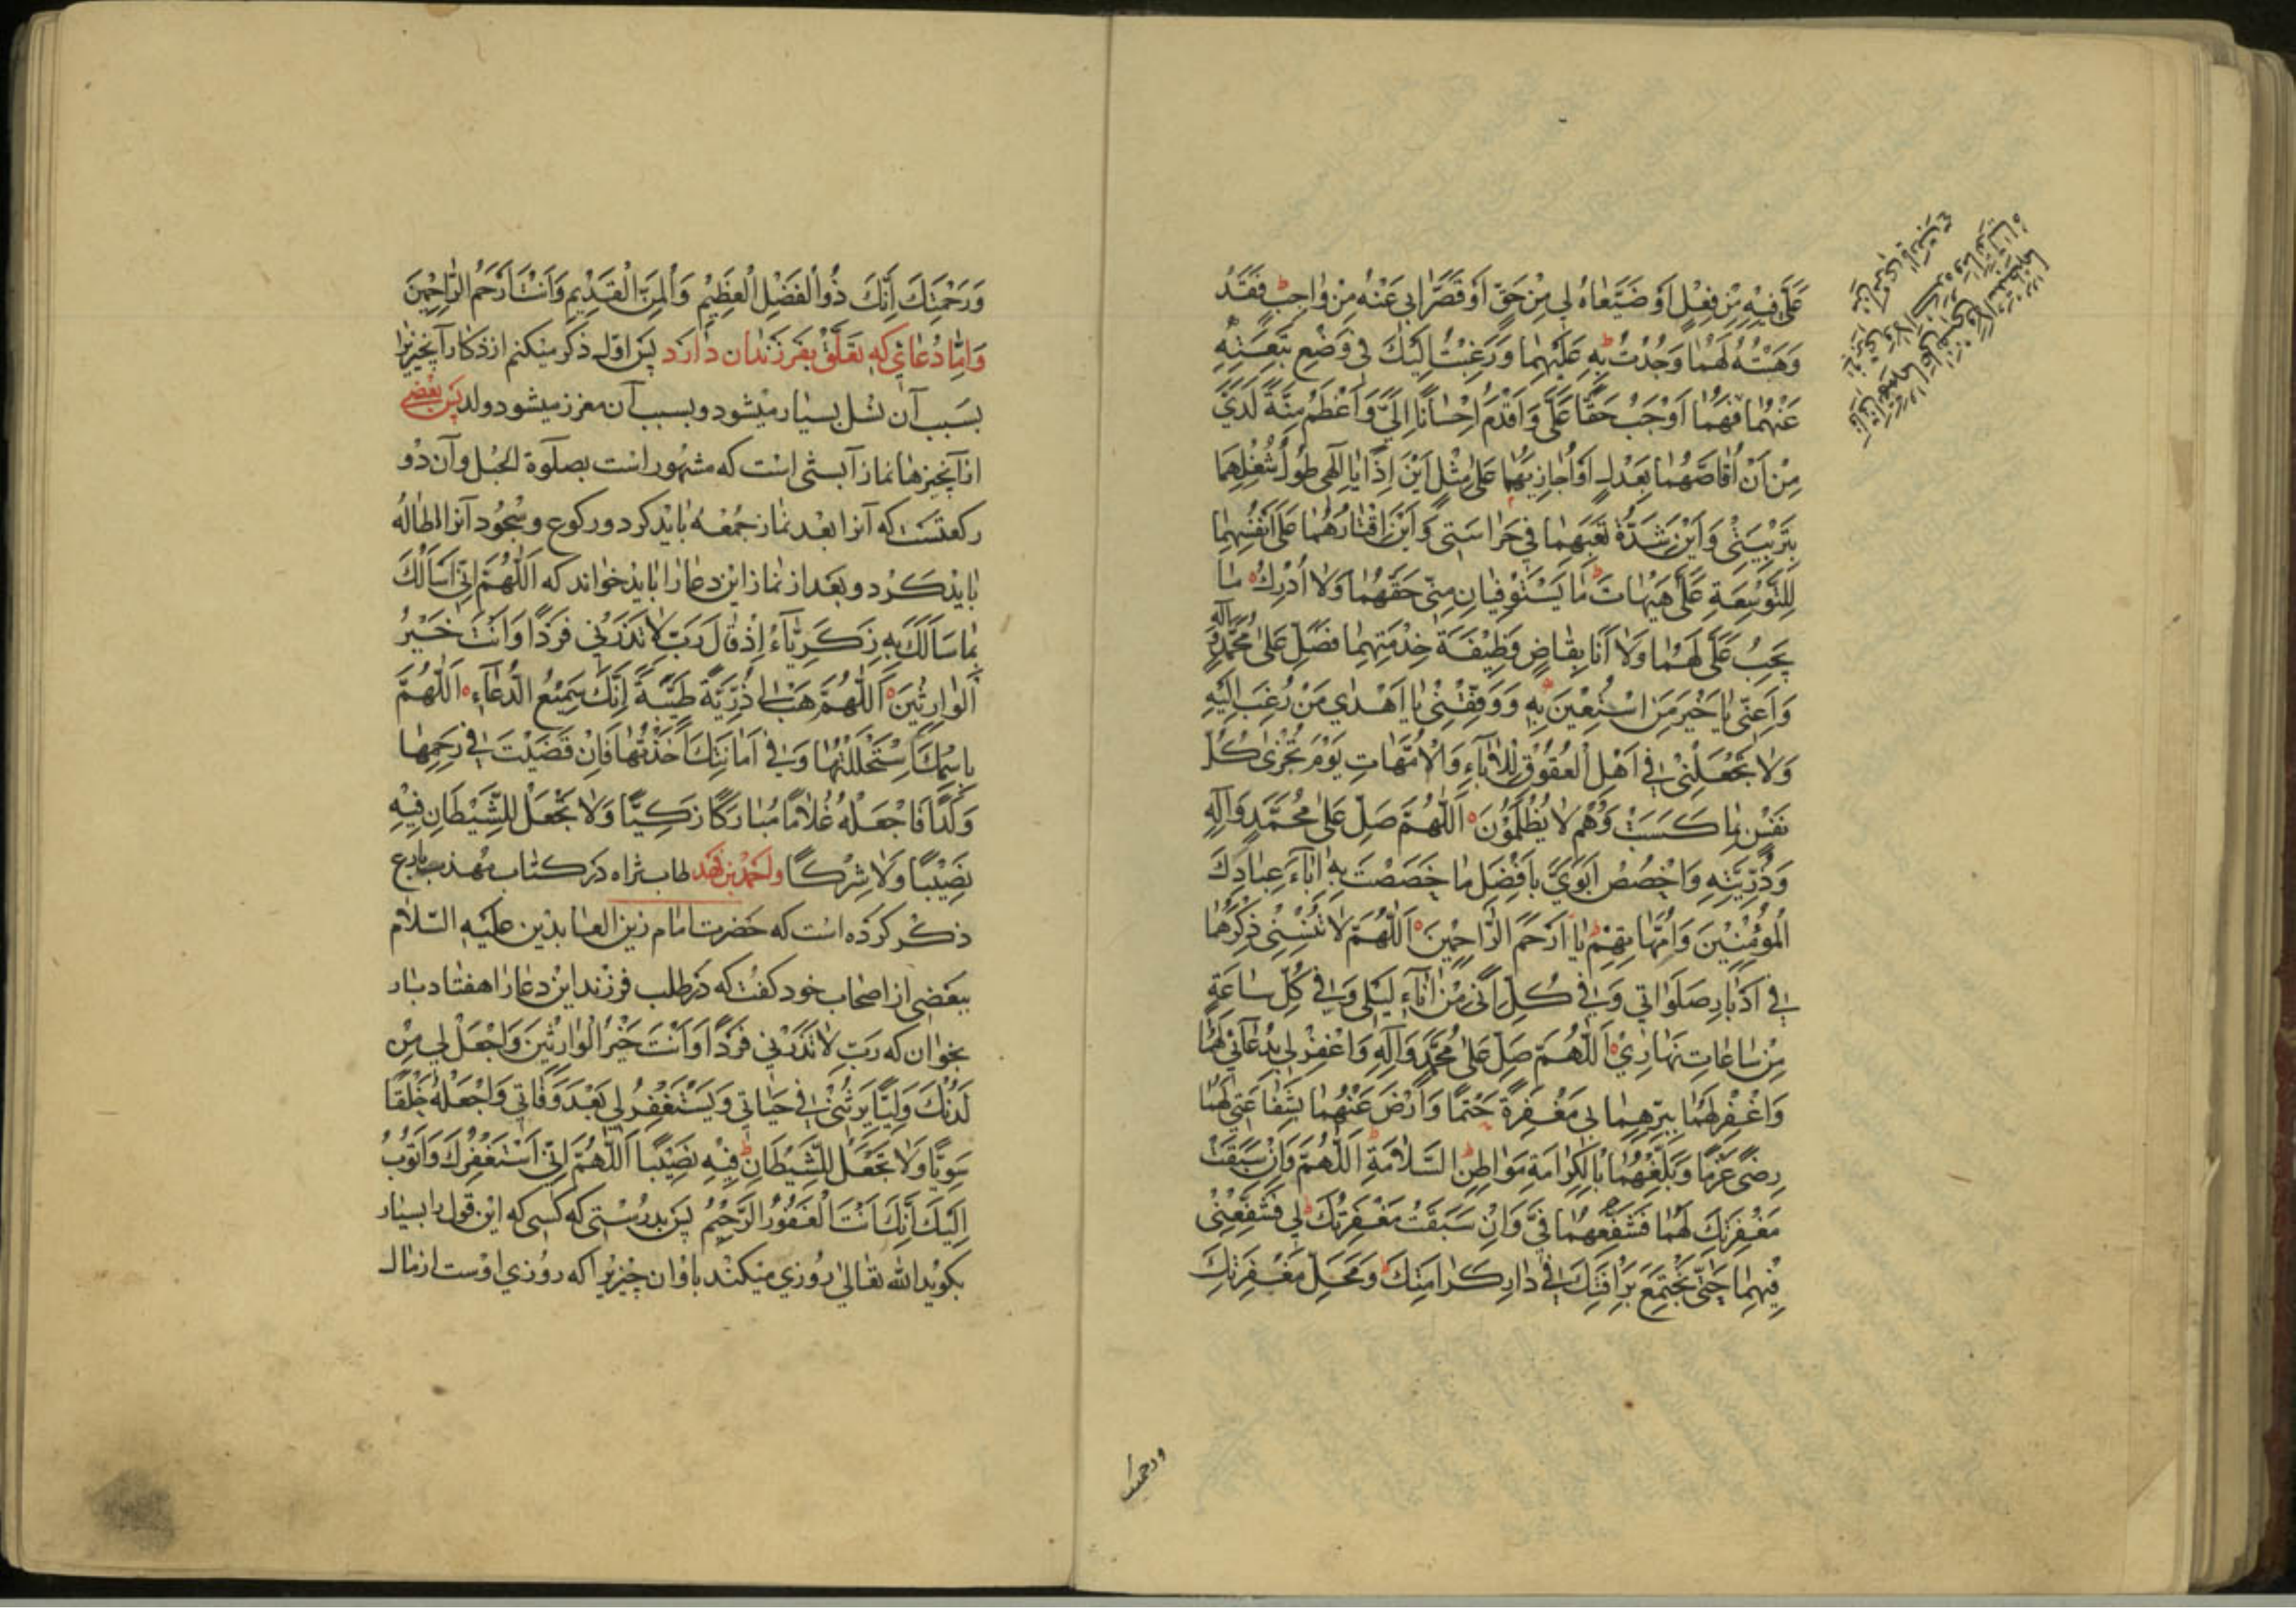 عَلَيَّ فِيهِ مِنْ فِعْلٍ اَوْ ضَيَّعَاهُ لِي مِنْ حَقٍّ اَوْ قَصَّرَا بِي عَنْهُ مِنْ وَاجِبٍ فَقَدْ
وَهَبْتُهُ لَهُمَا وَجُدْتُ بِهِ عَلَيْهِمَا وَرَغِبْتُ اِلَيْكَ فِي وَضْعِ تَبِعَتِهِ
عَنْهُمَا فَهُمَا اَوْجَبُ حَقًّا عَلَيَّ وَاَقْدَمُ اِحْسَانًا اِلَيَّ وَاَعْظَمُ مِنَّةً لَدَيَّ
مِنْ اَنْ اُقَاصَّهُمَا بِعَدْلٍ اَوْ اُجَازِيَهُمَا عَلَى مِثْلٍ اَيْنَ اِذًا يَا اِلٰهِي طُولُ شُغْلِهِمَا
بِتَرْبِيَتِي وَاَيْنَ شِدَّةُ تَعَبِهِمَا فِي حَرَاسَتِي وَاَيْنَ اِقْتَارُهُمَا عَلَى اَنْفُسِهِمَا
لِلتَّوْسِعَةِ عَلَيَّ هَيْهَاتَ مَا يَسْتَوْفِيَانِ مِنِّي حَقَّهُمَا وَلَا اُدْرِكُ مَا
يَجِبُ عَلَيَّ لَهُمَا وَلَا اَنَا بِقَاضٍ وَظِيفَةَ خِدْمَتِهِمَا فَصَلِّ عَلَى مُحَمَّدٍ وَآلِهِ
وَاَعِنِّي يَا خَيْرَ مَنِ اسْتُعِينَ بِهِ وَوَفِّقْنِي يَا اَهْدَى مَنْ رُغِبَ اِلَيْهِ
وَلَا تَجْعَلْنِي فِي اَهْلِ الْعُقُوقِ لِلْآبَاءِ وَالْاُمَّهَاتِ يَوْمَ تُجْزَى كُلُّ
نَفْسٍ بِمَا كَسَبَتْ وَهُمْ لَا يُظْلَمُونَ اَللّٰهُمَّ صَلِّ عَلَى مُحَمَّدٍ وَآلِهِ
وَذُرِّيَّتِهِ وَاخْصُصْ اَبَوَيَّ بِاَفْضَلِ مَا خَصَصْتَ بِهِ آبَاءَ عِبَادِكَ
الْمُؤْمِنِينَ وَاُمَّهَاتِهِمْ يَا اَرْحَمَ الرَّاحِمِينَ اَللّٰهُمَّ لَا تُنْسِنِي ذِكْرَهُمَا
فِي اَدْبَارِ صَلَوَاتِي وَفِي كُلِّ اِنًى مِنْ آنَاءِ لَيْلِي وَفِي كُلِّ سَاعَةٍ
مِنْ سَاعَاتِ نَهَارِي اَللّٰهُمَّ صَلِّ عَلَى مُحَمَّدٍ وَآلِهِ وَاغْفِرْ لِي بِدُعَائِي لَهُمَا
وَاغْفِرْ لَهُمَا بِبِرِّهِمَا بِي مَغْفِرَةً حَتْمًا وَارْضَ عَنْهُمَا بِشَفَاعَتِي لَهُمَا
رِضًى عَزْمًا وَبَلِّغْهُمَا بِالْكَرَامَةِ مَوَاطِنَ السَّلَامَةِ اَللّٰهُمَّ وَاِنْ سَبَقَتْ
مَغْفِرَتُكَ لَهُمَا فَشَفِّعْهُمَا فِيَّ وَاِنْ سَبَقَتْ مَغْفِرَتُكَ لِي فَشَفِّعْنِي
فِيهِمَا حَتَّى نَجْتَمِعَ بِرَأْفَتِكَ فِي دَارِ كَرَامَتِكَ وَمَحَلِّ مَغْفِرَتِكَ
ورحمتك
وَرَحْمَتِكَ اِنَّكَ ذُو الْفَضْلِ الْعَظِيمِ وَالْمَنِّ الْقَدِيمِ وَاَنْتَ اَرْحَمُ الرَّاحِمِينَ
وَامّا دُعائي كه تعَلّق بفرزندان دارد پس اوّل ذكر ميكنم از ذكار آنچيزيرا
بسَبب آن نسل بسيار ميشود و بسبب آن معزز ميشود ولد پس بعضى
از آنچيزها نماز آبستى است كه مشهور است بصلوة الحبل وآن دو
ركعتست كه آنرا بعد نماز جمعه بايد كرد و ركوع و سجود آنرا اطاله
بايد كرد و بعد از نماز اين دعا را بايد خواند كه اَللّٰهُمَّ اِنِّي اَسْاَلُكَ
بِمَا سَاَلَكَ بِهِ زَكَرِيَّاءُ اِذْ قَالَ رَبِّ لَا تَذَرْنِي فَرْدًا وَاَنْتَ خَيْرُ
الْوَارِثِينَ اَللّٰهُمَّ هَبْ لِي ذُرِّيَّةً طَيِّبَةً اِنَّكَ سَمِيعُ الدُّعَاءِ اَللّٰهُمَّ
بِاسْمِكَ اسْتَحْلَلْتُهَا وَفِي اَمَانَتِكَ اَخَذْتُهَا فَاِنْ قَضَيْتَ فِي رَحِمِهَا
وَلَدًا فَاجْعَلْهُ غُلَامًا مُبَارَكًا زَكِيًّا وَلَا تَجْعَلْ لِلشَّيْطَانِ فِيهِ
نَصِيبًا وَلَا شِرْكًا واحمد بن فهد طاب ثراه در كتاب مهذب بارع
ذكر كرده است كه حضرت امام زين العابدين عليه السلام
ببعضى از اصحاب خود گفت كه در طلب فرزند اين دعا را هفتاد بار
بخوان كه رَبِّ لَا تَذَرْنِي فَرْدًا وَاَنْتَ خَيْرُ الْوَارِثِينَ وَاجْعَلْ لِي مِنْ
لَدُنْكَ وَلِيًّا يَرِثُنِي فِي حَيَاتِي وَيَسْتَغْفِرُ لِي بَعْدَ وَفَاتِي وَاجْعَلْهُ خَلْقًا
سَوِيًّا وَلَا تَجْعَلْ لِلشَّيْطَانِ فِيهِ نَصِيبًا اَللّٰهُمَّ اِنِّي اَسْتَغْفِرُكَ وَاَتُوبُ
اِلَيْكَ اِنَّكَ اَنْتَ الْغَفُورُ الرَّحِيمُ پس بدرستى كه كسى كه اين قول را بسيار
بگويد الله تعالى روزي ميكند باو ان چيزيرا كه روزي اوست از مال